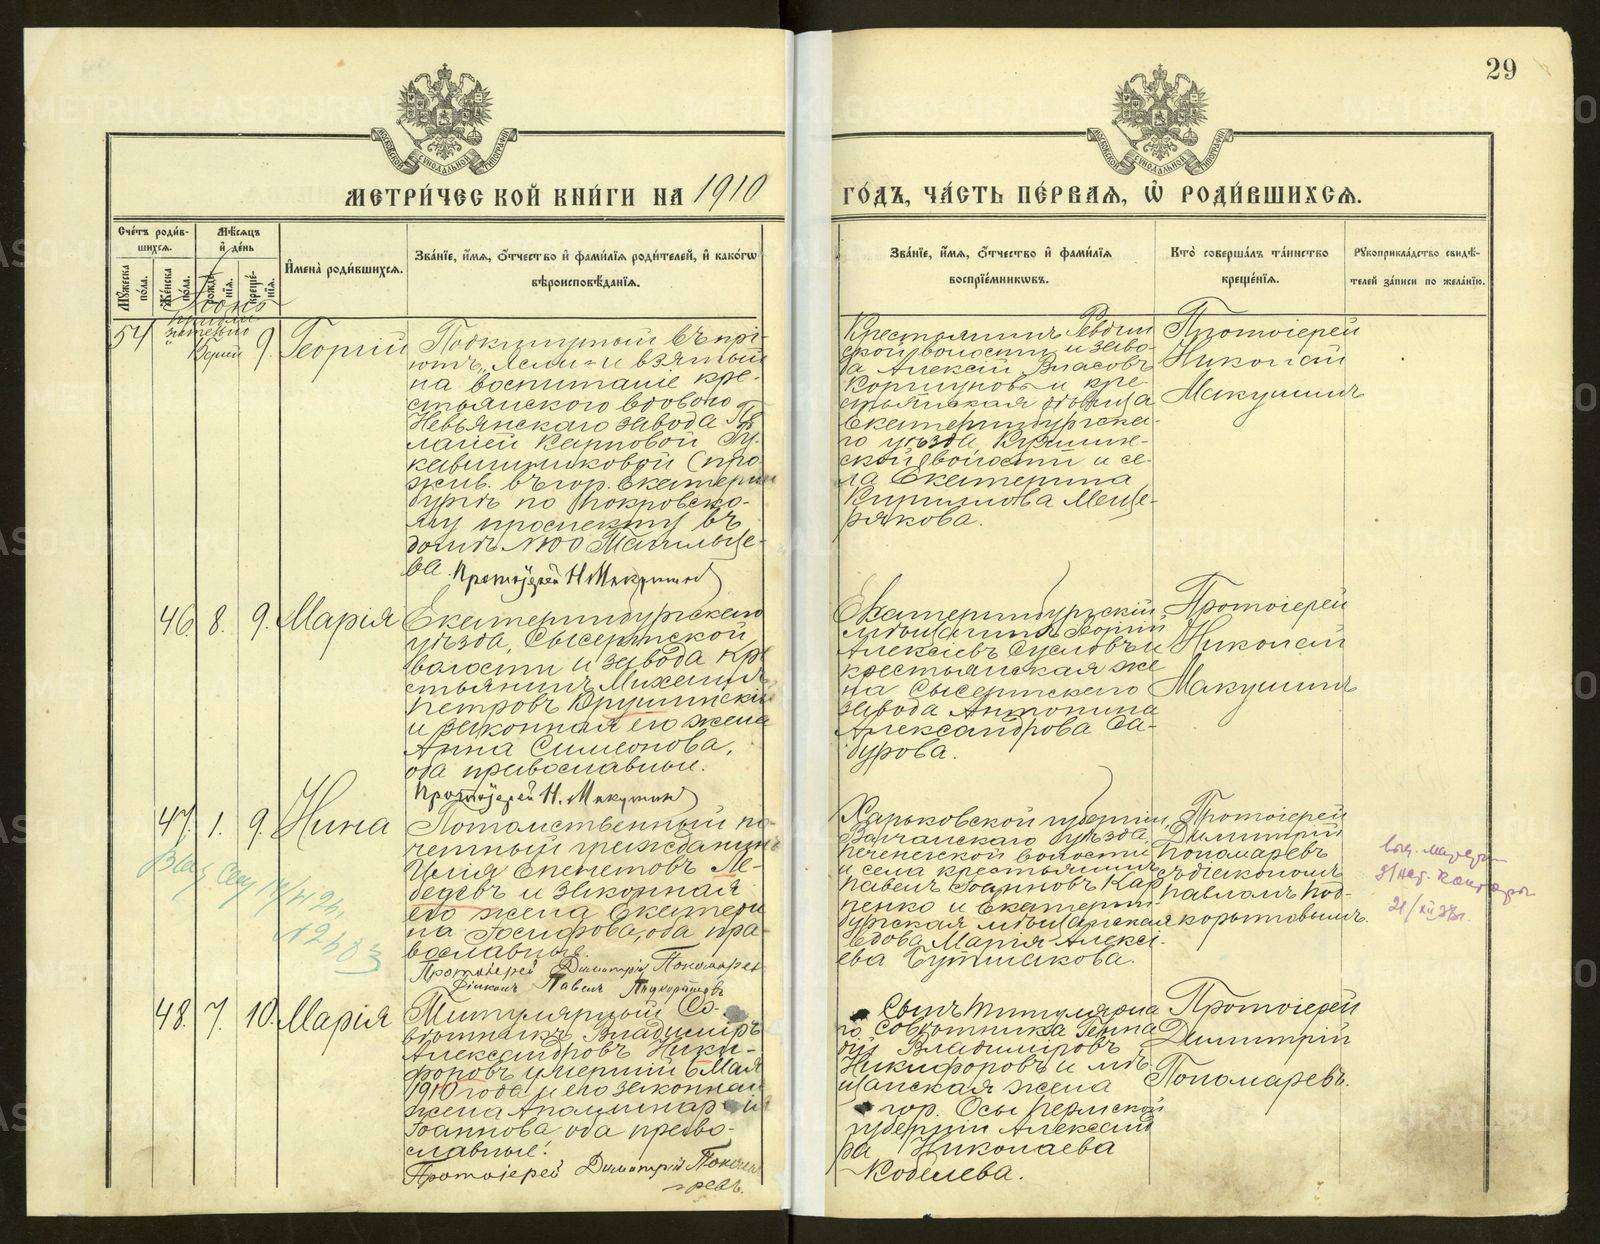 29
МЕТРИ́ЧЕСКОЙ КНИ́ГИ НА 1910
ГО́ДЪ, ЧА́СТЬ ПЕ́РВАЯ, Ѡ҆ РОДИ́ВШИХСѦ.
Сче́тъ роди́в-
шихсѧ.
Мꙋ́жеска
по́ла.
Же́нска
по́ла.
Мѣ́сѧцъ
и҆ де́нь
рожде́-
нїѧ.
креще́-
нїѧ.
И҆мена̀ роди́вшихсѧ.
Зва́нїе, и҆́мѧ, ѻ҆́тчество и҆ фами́лїѧ роди́телей, и҆ како́гѡ
вѣроисповѣ́данїѧ.
Зва́нїе, и҆́мѧ, ѻ҆́тчество и҆ фами́лїѧ
воспрїе́мникѡвъ.
Кто̀ соверша́лъ та́инство
креще́нїѧ.
Рꙋкоприкла́дство свидѣ́-
телей за́писи по жела́нїю.
54
9.
Георгій
Подкинутый въ прі-
ютъ „Ясли" и взятый
на воспитаніе кре-
стьянского вдовою
Невьянскаго завода Пе-
лагіей Карповой
(про-
жив. въ гор. Екатерин
бургѣ по Покровско-
му проспекту въ
домѣ № 100
ва. Протоіерей Н. Макушинъ
Крестьянинъ Ревдин
ской волости и заво-
да Алексій Власовъ
Коршуновъ и кре-
стьянская дѣвица
Екатеринбургска-
го уѣзда,
ской волости и се-
ла Екатерина
Кириллова Меще-
рякова.
Протоіерей
Николай
Макушинъ
46. 8. 9. Марія
Екатеринбургскаго
уѣзда, Сысертской
волости и завода кре
стьянинъ Михаилъ
Петровъ
и законная его жена
Анна Симеонова,
оба православные.
Протоіерей Н. Макушинъ
Екатеринбургскій
мѣщанинъ Георгій
Алексіевъ Сусловъ и
крестьянская же
на Сысертскаго
завода Антонина
Александрова Са-
бурова.
Протоіерей
Николай
Макушинъ
47. 1. 9. Нина
Потомственный по-
четный гражданинъ
Илія Епенетовъ Ле-
бедевъ и законная
его жена Екатери
на Іосифова, оба пра-
вославные.
Протоіерей Димитрій Пономарев
Діаконъ Павелъ
Харьковской губерніи,
Волчанскаго уѣзда,
Печенежской волости
и села крестьянинъ
Павелъ Іоанновъ Кар
пенко и Екатерин-
бургская мѣщанская
вдова Марія Алексі-
ева
Протоіерей
Димитрій
Пономаревъ
съ діакономъ
Павломъ Под-
корытовымъ.
21/XII
48. 7. 10. Марія
Титулярный Со-
вѣтникъ Владиміръ
Александровъ Ники-
форовъ умершій 6 Мая
1910 года и его законная
жена Аполлинарія
Іоаннова оба право-
славные.
Протоіерей Димитрій Понома
ревъ.
Сынъ титулярна
го совѣтника Генна
дій Владиміровъ
Никифоровъ и мѣ-
щанская жена
гор. Осы Пермской
губерніи Александ
ра Николаева
Кобелева.
Протоіерей
Димитрій
Пономаревъ.